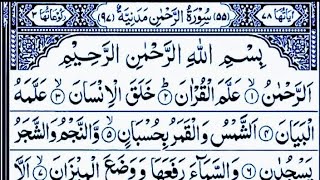 اٰيَاتُهَا ٧٨ (٥٥) سُوْرَةُ الرَّحْمٰنِ مَدَنِيَّةٌ (٩٧) رُكُوْعَاتُهَا ٣
بِسْمِ اللّٰهِ الرَّحْمٰنِ الرَّحِيْمِ
اَلرَّحْمٰنُ ۙ۝١ عَلَّمَ الْقُرْاٰنَ ؕ۝٢ خَلَقَ الْاِنْسَانَ ۙ۝٣ عَلَّمَهُ
الْبَيَانَ ۝٤ اَلشَّمْسُ وَالْقَمَرُ بِحُسْبَانٍ ۪۝٥ وَّالنَّجْمُ وَالشَّجَرُ
يَسْجُدٰنِ ۝٦ وَالسَّمَآءَ رَفَعَهَا وَوَضَعَ الْمِيْزَانَ ۙ۝٧ اَلَّا